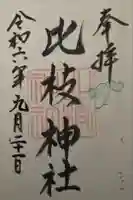 奉拝
比枝神社
令和六年元月二十一日